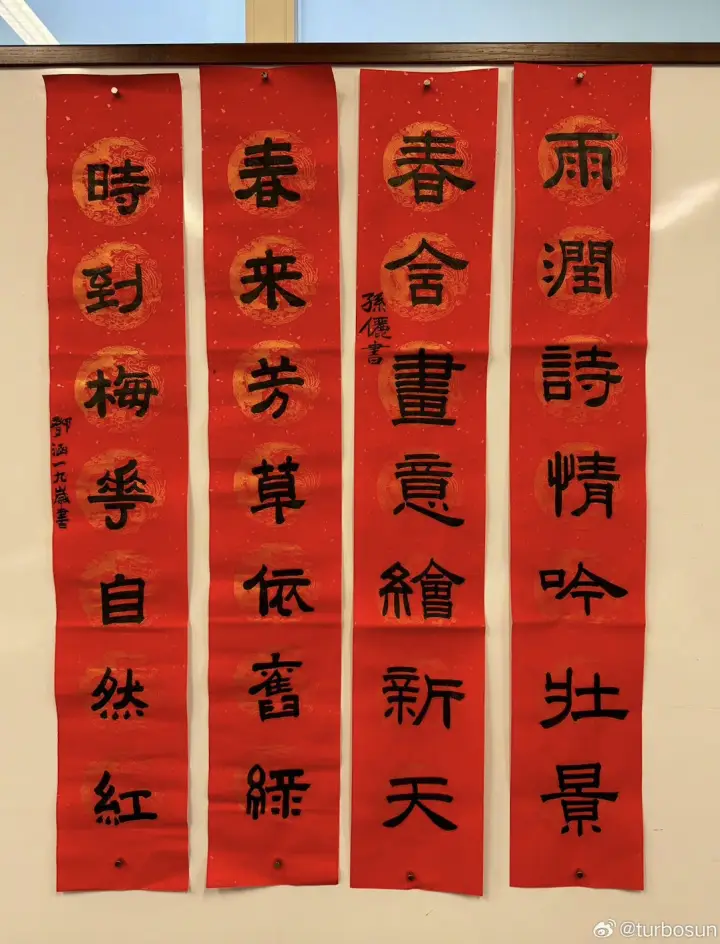 雨潤詩情吟壮景
春含畫意繪新天
孫儷書
春来芳草依舊綠
時到梅華自然紅
涵一九歲書
@turbosun